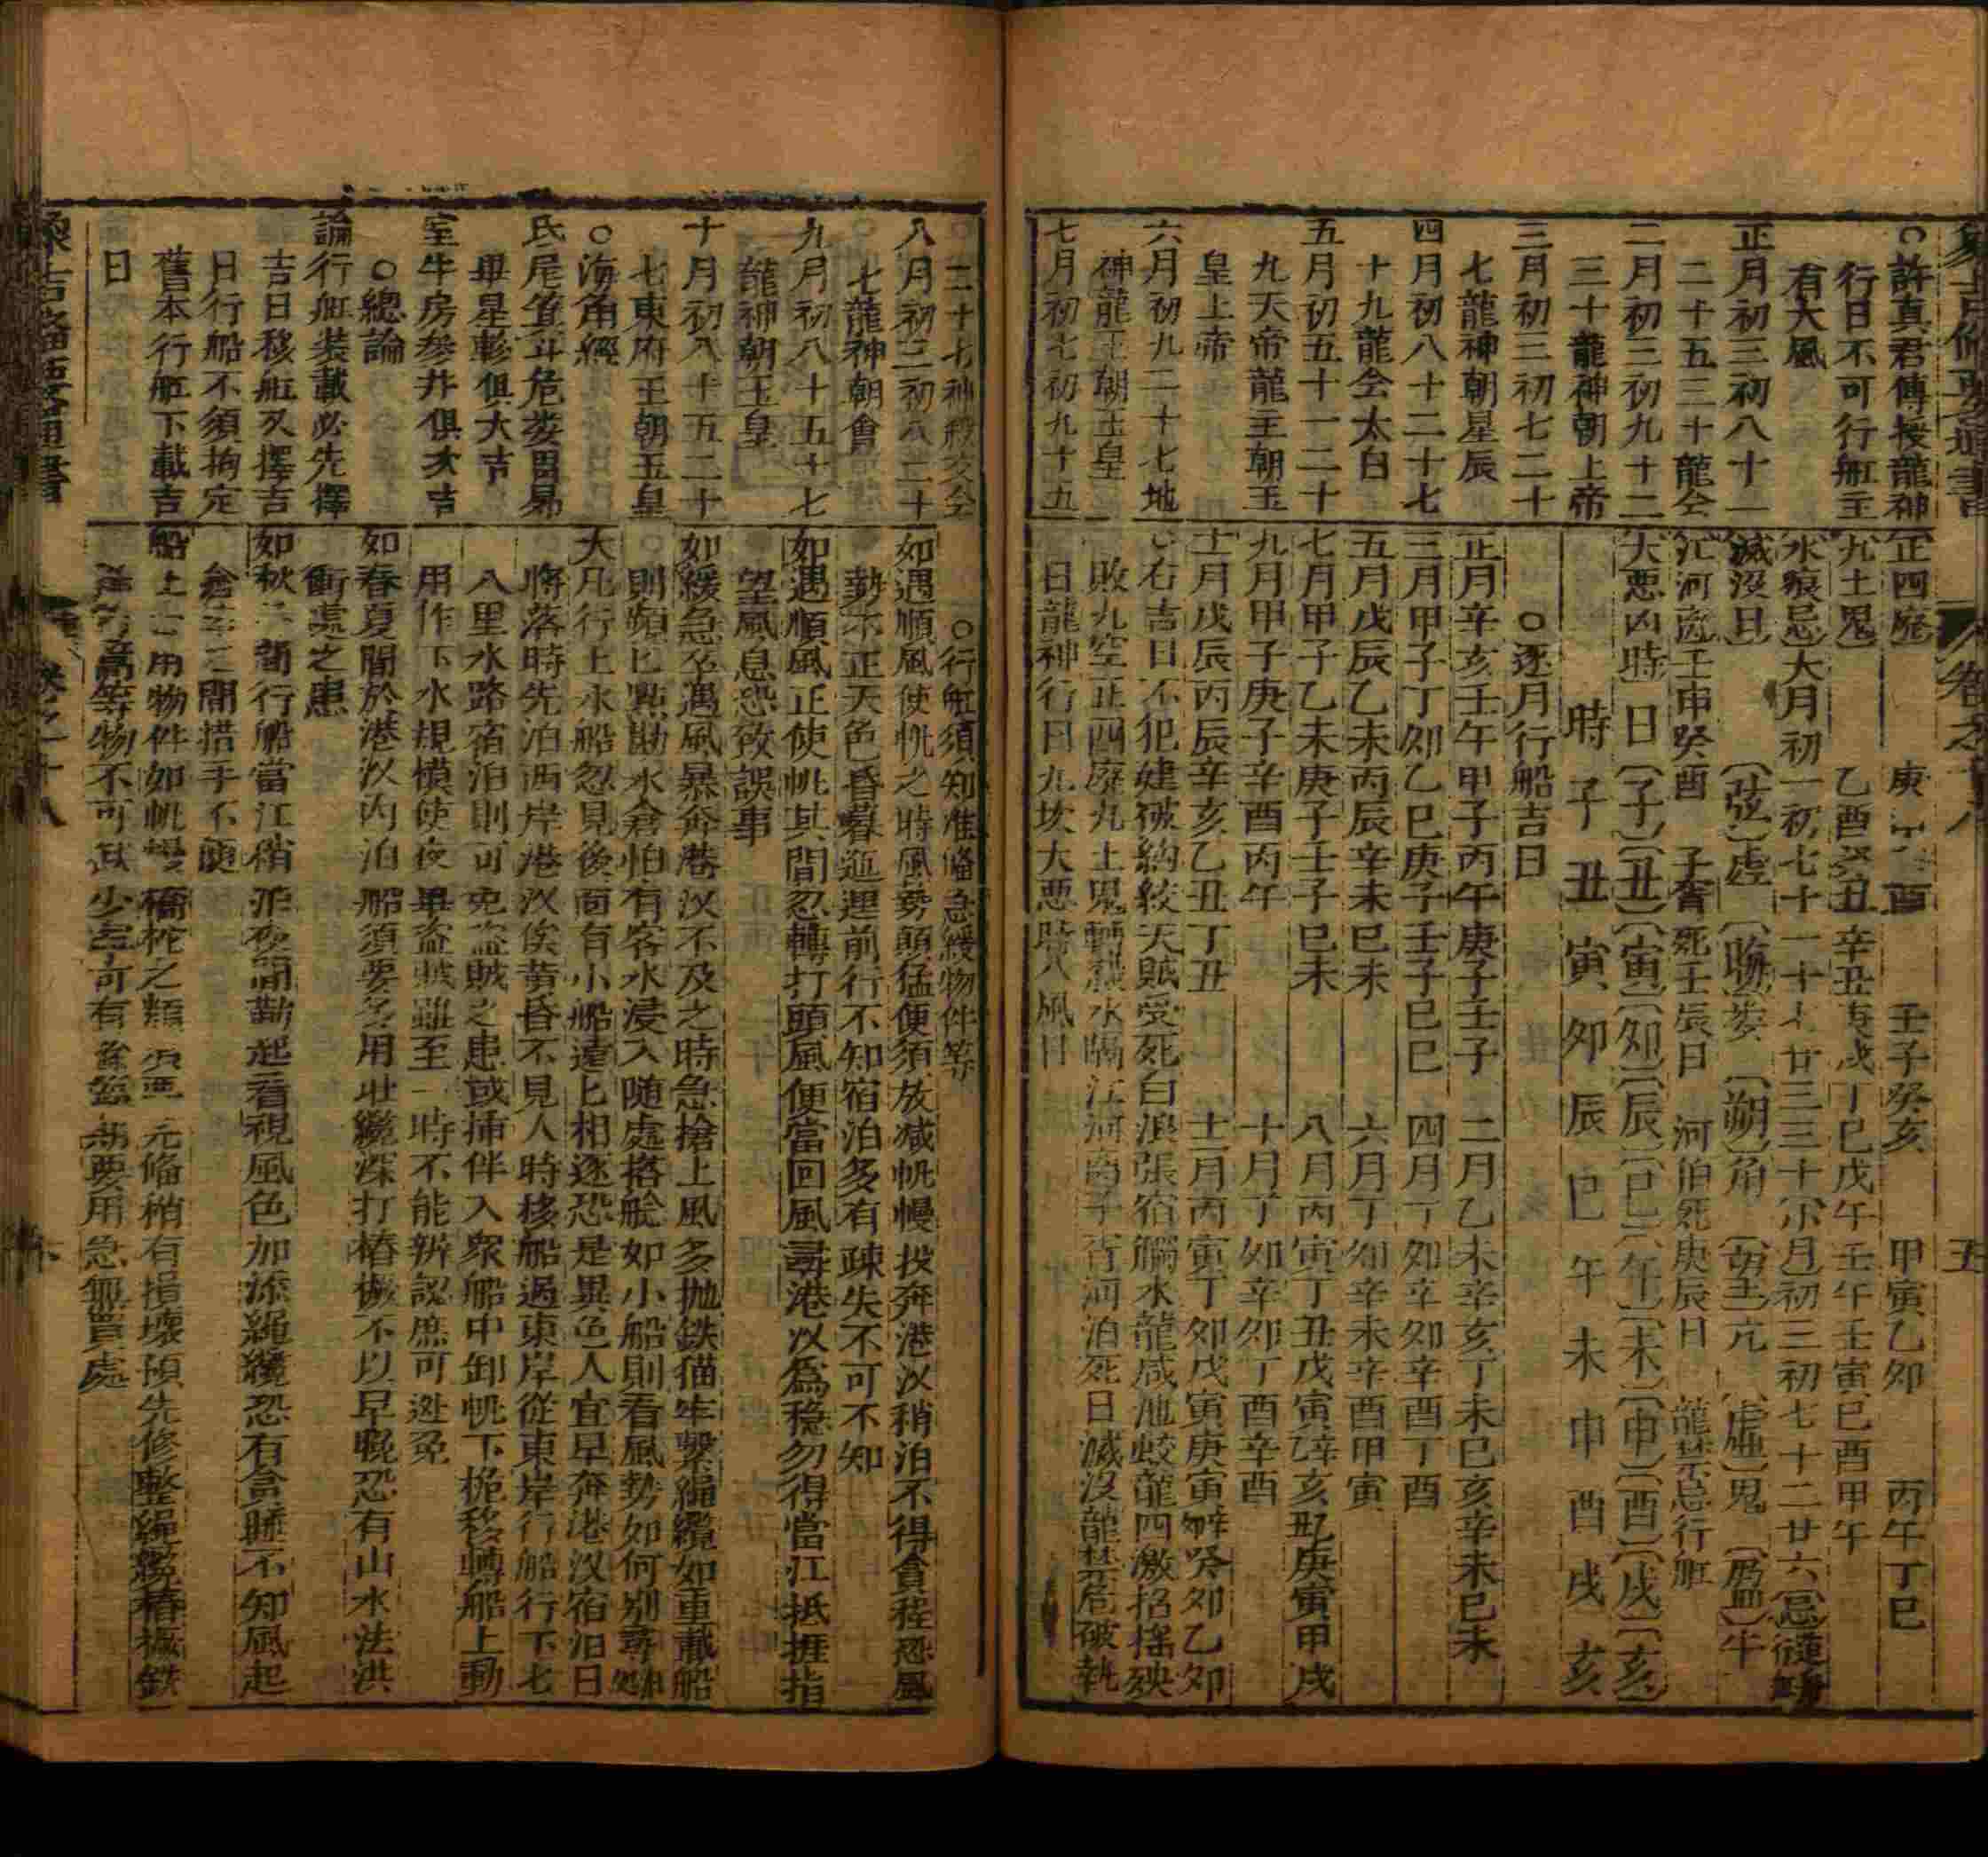 象吉備要通書
卷之十八
五
○許真君傳授龍神
行日不可行舡主
有大風
正月初三初八十一
二十五三十龍会
二月初三初九十二
三十龍神朝上帝
三月初三初七二十
七龍神朝星辰
四月初八十二十七
十九龍会太白
五月初五十一二十
九天帝龍王朝玉
皇上帝
六月初九二十七地
神龍王朝玉皇
七月初七初九十五
正四廃 庚 酉 壬子癸亥 甲寅乙卯 丙午丁巳
九土鬼 乙酉癸丑辛丑 戌丁巳戊午壬午壬寅己酉甲午
水痕忌 大月初一初七十一十七廿三三十小月初三初七十二廿六忌
滅沒日 弦虛 晦婁 朔角 亢 虛鬼 盈牛
江河离壬申癸酉 子胥死壬辰日 河伯死庚辰日 龍禁忌行舡
大惡凶時 日 子 丑 寅 卯 辰 巳 午 未 申 酉 戌 亥
時 子 丑 寅 卯 辰 巳 午 未 申 酉 戌 亥
○逐月行船吉日
正月辛亥壬午甲子丙午庚子壬子 二月乙未辛亥丁未己亥辛未己未
三月甲子丁卯乙巳庚子壬子己巳 四月丁卯辛卯辛酉丁酉
五月戊辰乙未丙辰辛未己未 六月丁卯辛未辛酉甲寅
七月甲子乙未庚子壬子己未 八月丙寅丁丑戊寅乙亥 庚寅甲戌
九月甲子庚子辛酉丙午 十月丁卯辛卯丁酉辛酉
十一月戊辰丙辰辛亥乙丑丁丑 十二月丙寅丁卯戊寅庚寅 癸卯乙卯
右吉日不犯建破勾絞天賊受死白浪張宿觸水龍咸池蛟龍四激招搖殃
敗九空正四廢九土鬼 水隔江河离子胥河泊死日滅沒龍禁危破執
日龍神行日九坎大惡時八風日
○二十七神 交会
八月初三初八二十
七龍神朝會
九月初八十五十七
龍神朝玉皇
十月初八十五二十
七東府王朝玉皇
○海角經
氏尾箕斗危娄胃昴
畢星軫俱大吉
室牛房參井俱次吉
○總論
論行舡裝載必先擇
吉日移舡又擇吉
日行船不須拘定
舊本行舡下載吉
日
○行舡須知准俻急緩物件等
如遇順風使帆之時風勢顛猛便須放减帆幔投奔港汊稍泊不得貪程恐風
勢不正天色昏暮迤逦前行不知宿泊多有疎失不可不知
如遇順風正使帆其間忽轉打頭風便當回風尋港以爲穩勿得當江抵捱指
望風息恐致誤事
如緩急卒遇風暴奔港汊不及之時急搶上風多抛鉄猫牢繫繩纜如重載船
則頻匕點勘水倉怕有客水浸入随處搭舱如小船則看風勢如何别尋
大凡行上水船忽見後面有小船遠匕相逐恐是異色人宜早奔港汊宿泊日
將落時先泊西岸港汊俟黄昏不見人時移船過東岸從東岸行船行下七
八里水路宿泊則可免盗賊之患或挿伴入衆船中卸帆下桅移轉船上動
用作下水規模使夜 盗賊雖至一時不能辨認庶可逃免
如春夏間於港汊内泊船須要多用壯纜深打樁橛不以早晚恐有山水法洪
衝蕩之患
如秋冬間行船當江稍泊夜間勤起看視風色加添繩纜恐有貪睡不知風起
倉卒之間措手不便
船上合用物件如帆幔橋柁之類須要完俻稍有損壞預先修整繩纜樁橛鉄
等物不可 少 可有 要用急無買處
象吉備要通書
卷之十八